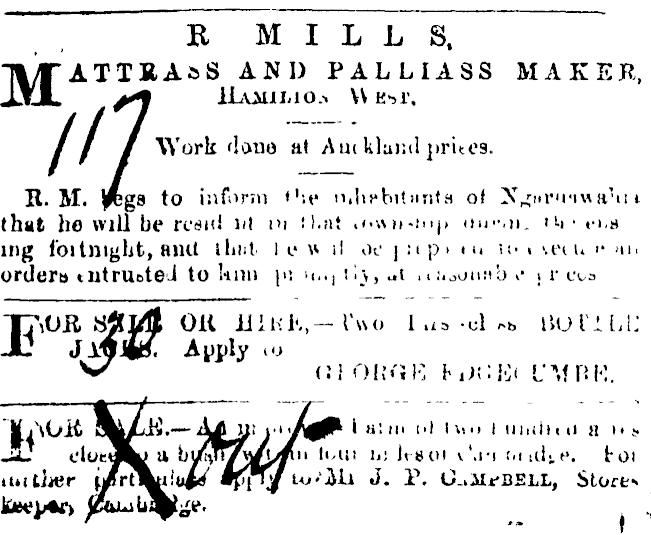 R MILLS,
MATTRASS AND PALLIASS MAKER,
HAMILTON WEST.
117
Work done at Auckland prices.
R. M. begs to inform the inhabitants of Ngaruawahia
that he will be resident in that township during the ensu
ing fortnight, and that he will be prepared to execute all
orders entrusted to him promptly, at reasonable prices
FOR SALE OR HIRE,—Two First-class BOTTLE
JACKS. Apply to
30
GEORGE EDGECUMBE.
FOR SALE.—An improved Farm of two hundred acres
close to a bush, within four miles of Cambridge. For
out
further particulars apply to Mr J. P. CAMPBELL, Store-
keeper, Cambridge.